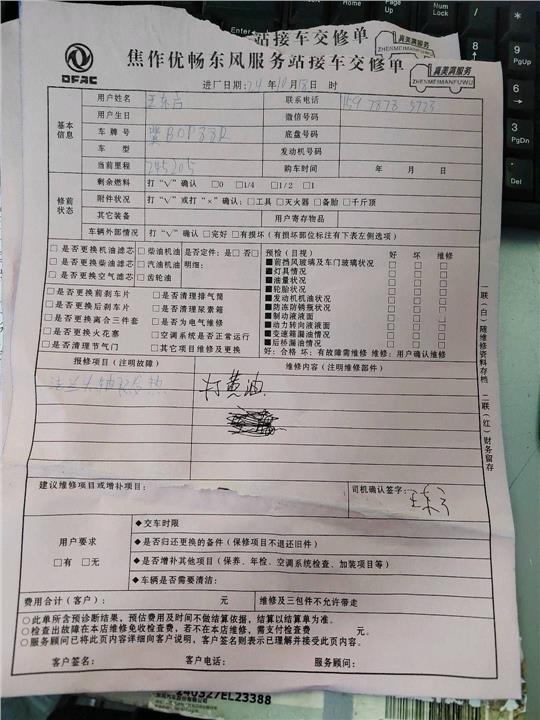 站接车交修单
真美真服务
ZHENMEIZHENFUWU
DFAC
焦作优畅东风服务站接车交修单
真美真服务
ZHENMEIZHENFUWU
进厂日期: 24 年 10 月 18 日 时
基本信息
用户姓名 联系电话 159 7873 3773
用户生日 微信号码
车牌号 底盘号码
车 型 发动机号码
当前里程 745205 购车时间 年 月 日
修前状态
剩余燃料 打“√”确认 □0 □1/4 □1/2 □1
附件状况 打“√”或打“×”确认:□工具 □灭火器 □备胎 □千斤顶
其它装备 用户寄存物品
车辆外部情况 打“√”确认 □完好 □有损坏(有损坏部位标注有下表左侧选项)
□是否更换机油滤芯 □柴油机油 是否定件:是□ 否□
□是否更换柴油滤芯 □汽油机油 明细:
□是否更换空气滤芯 □齿轮油
□是否更换前刹车片 □是否清理排气筒
□是否更换后刹车片 □是否清理尿素箱
□是否更换离合三件套 □是否为电气维修
□是否更换火花塞 □空调系统是否正常运行
□是否清理节气门 □其它项目维修及更换
预检(目视) 好 坏 维修
■前挡风玻璃及车门玻璃状况 □ □ □
■灯具情况 □ □ □
■油量状况 □ □ □
■轮胎状况 □ □ □
■发动机机油状况 □ □ □
■防冻防锈液状况 □ □ □
■制动液液面 □ □ □
■动力转向液液面 □ □ □
■变速箱漏油情况 □ □ □
■后桥漏油情况 □ □ □
好:合格 坏:有故障需维修 维修:用户确认维修
报修项目(注明故障) 维修内容(注明维修部件)
打黄油
建议维修项目或增补项目: 司机确认签字:
用户要求
□有 □无
◆交车时限
◆是否归还更换的备件(保修项目不退还旧件)
◆是否增补其他项目(保养、年检、空调系统检查、加装项目等)
◆车辆是否需要清洁:
费用合计(客户): 元 维修及三包件不允许带走
○此单所含预诊断结果,预估费用及时间不做结算依据,结算以结算单为准。
○检查出故障在本店维修免收检查费,若不在本店维修,需支付检查费 元。
○服务顾问已将此页内容详细向客户说明,客户签名则表示已理解并接受此页内容。
客户签名: 客户电话: 服务顾问:
一联(白)随维修资料存档 二联(红)财务留存
240327EL23388